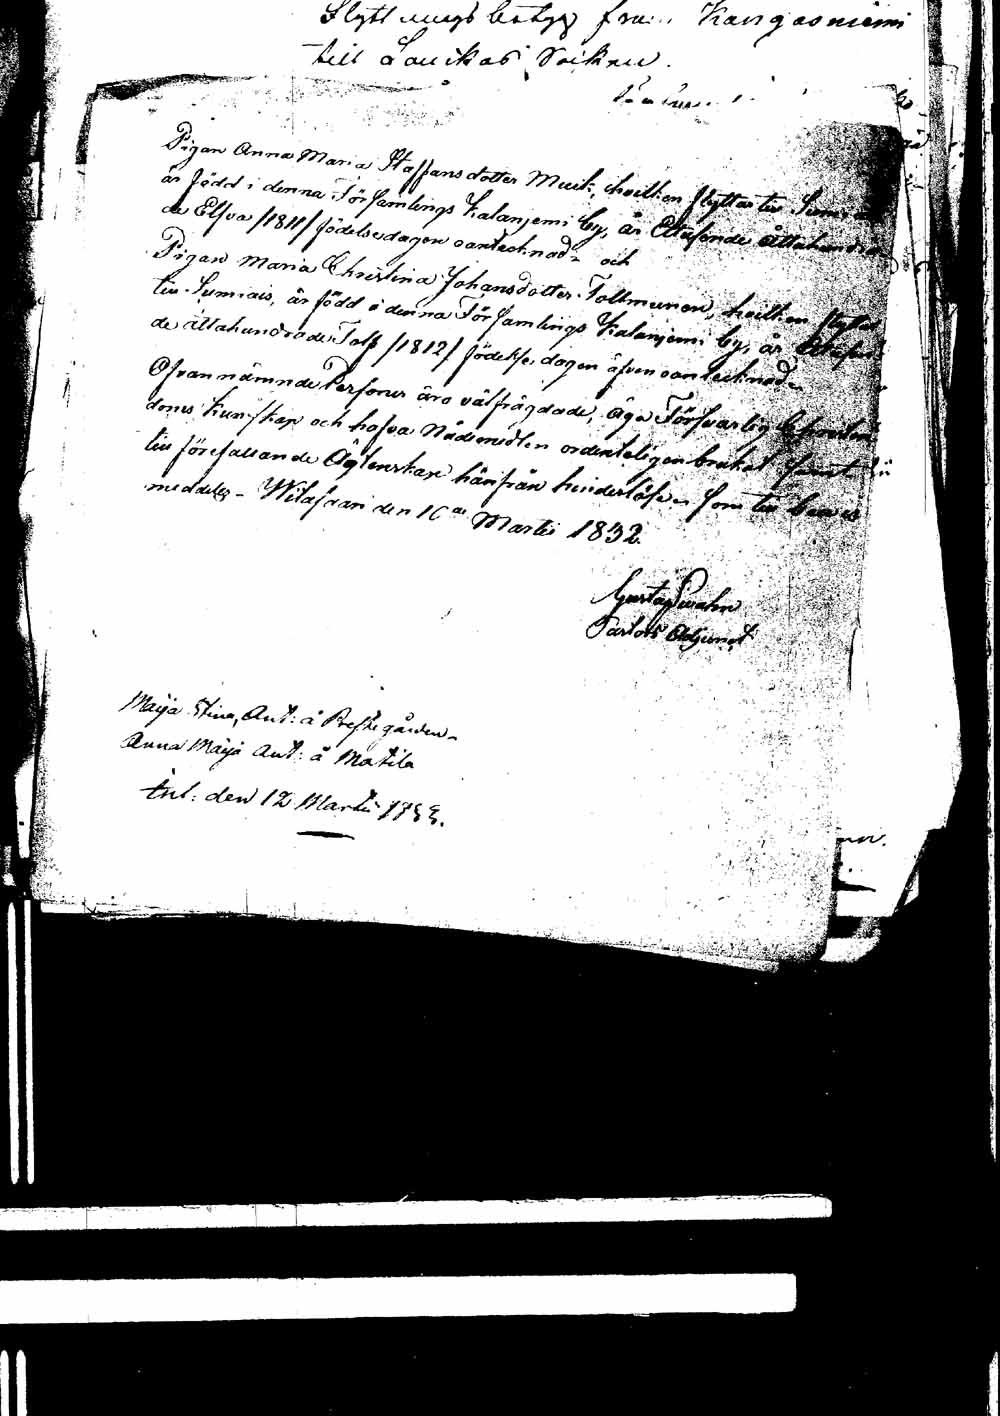 Flyttningsbetyg från Kangasniemi
till Laukas Socken.
Pigan Anna Maria Staffansdotter Musk, hvilken flyttar till Sumiais
är född i denna Församlings Kalanjemi by, år Ettusende Åttahundra
de Elfva /1811/ födelsedagen oantecknad - och
Pigan Maria Christina Johansdotter Tollmunen, hvilken flyttar
till Sumiais, är född i denna Församlings Kalanjemi by, år Ettusen
de åttahundrade Tolf /1812/ födelsedagen äfven oantecknad -
Ofvannämnde Personer äro välfrägdade, äga Försvarlig Christen
doms kunskap och hafva Nådemedlen ordenteligen brukat samt
till förefallande Ägtenskap härifrån hinderslöse - som till bevis
meddelas - Witasaari den 16 Martii 1832
Gustaf Swahn
Pastors Adjunct
Maija Stina, Ant: å Prestegården -
Anna Maija Ant: å Matila
Ant: den 12 Martii 1833.